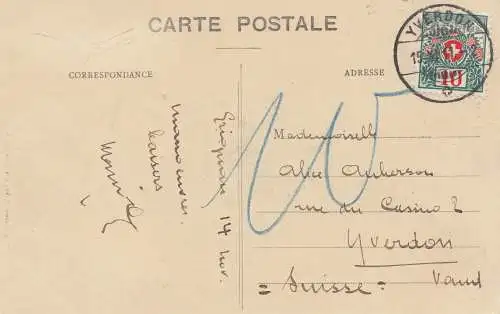 CARTE POSTALE
CORRESPONDANCE
ADRESSE
YVERDON
10
14 nov.
baisers
Mademoiselle
Alice Auberson
rue du Casino 2
Yverdon
= Suisse = Vaud